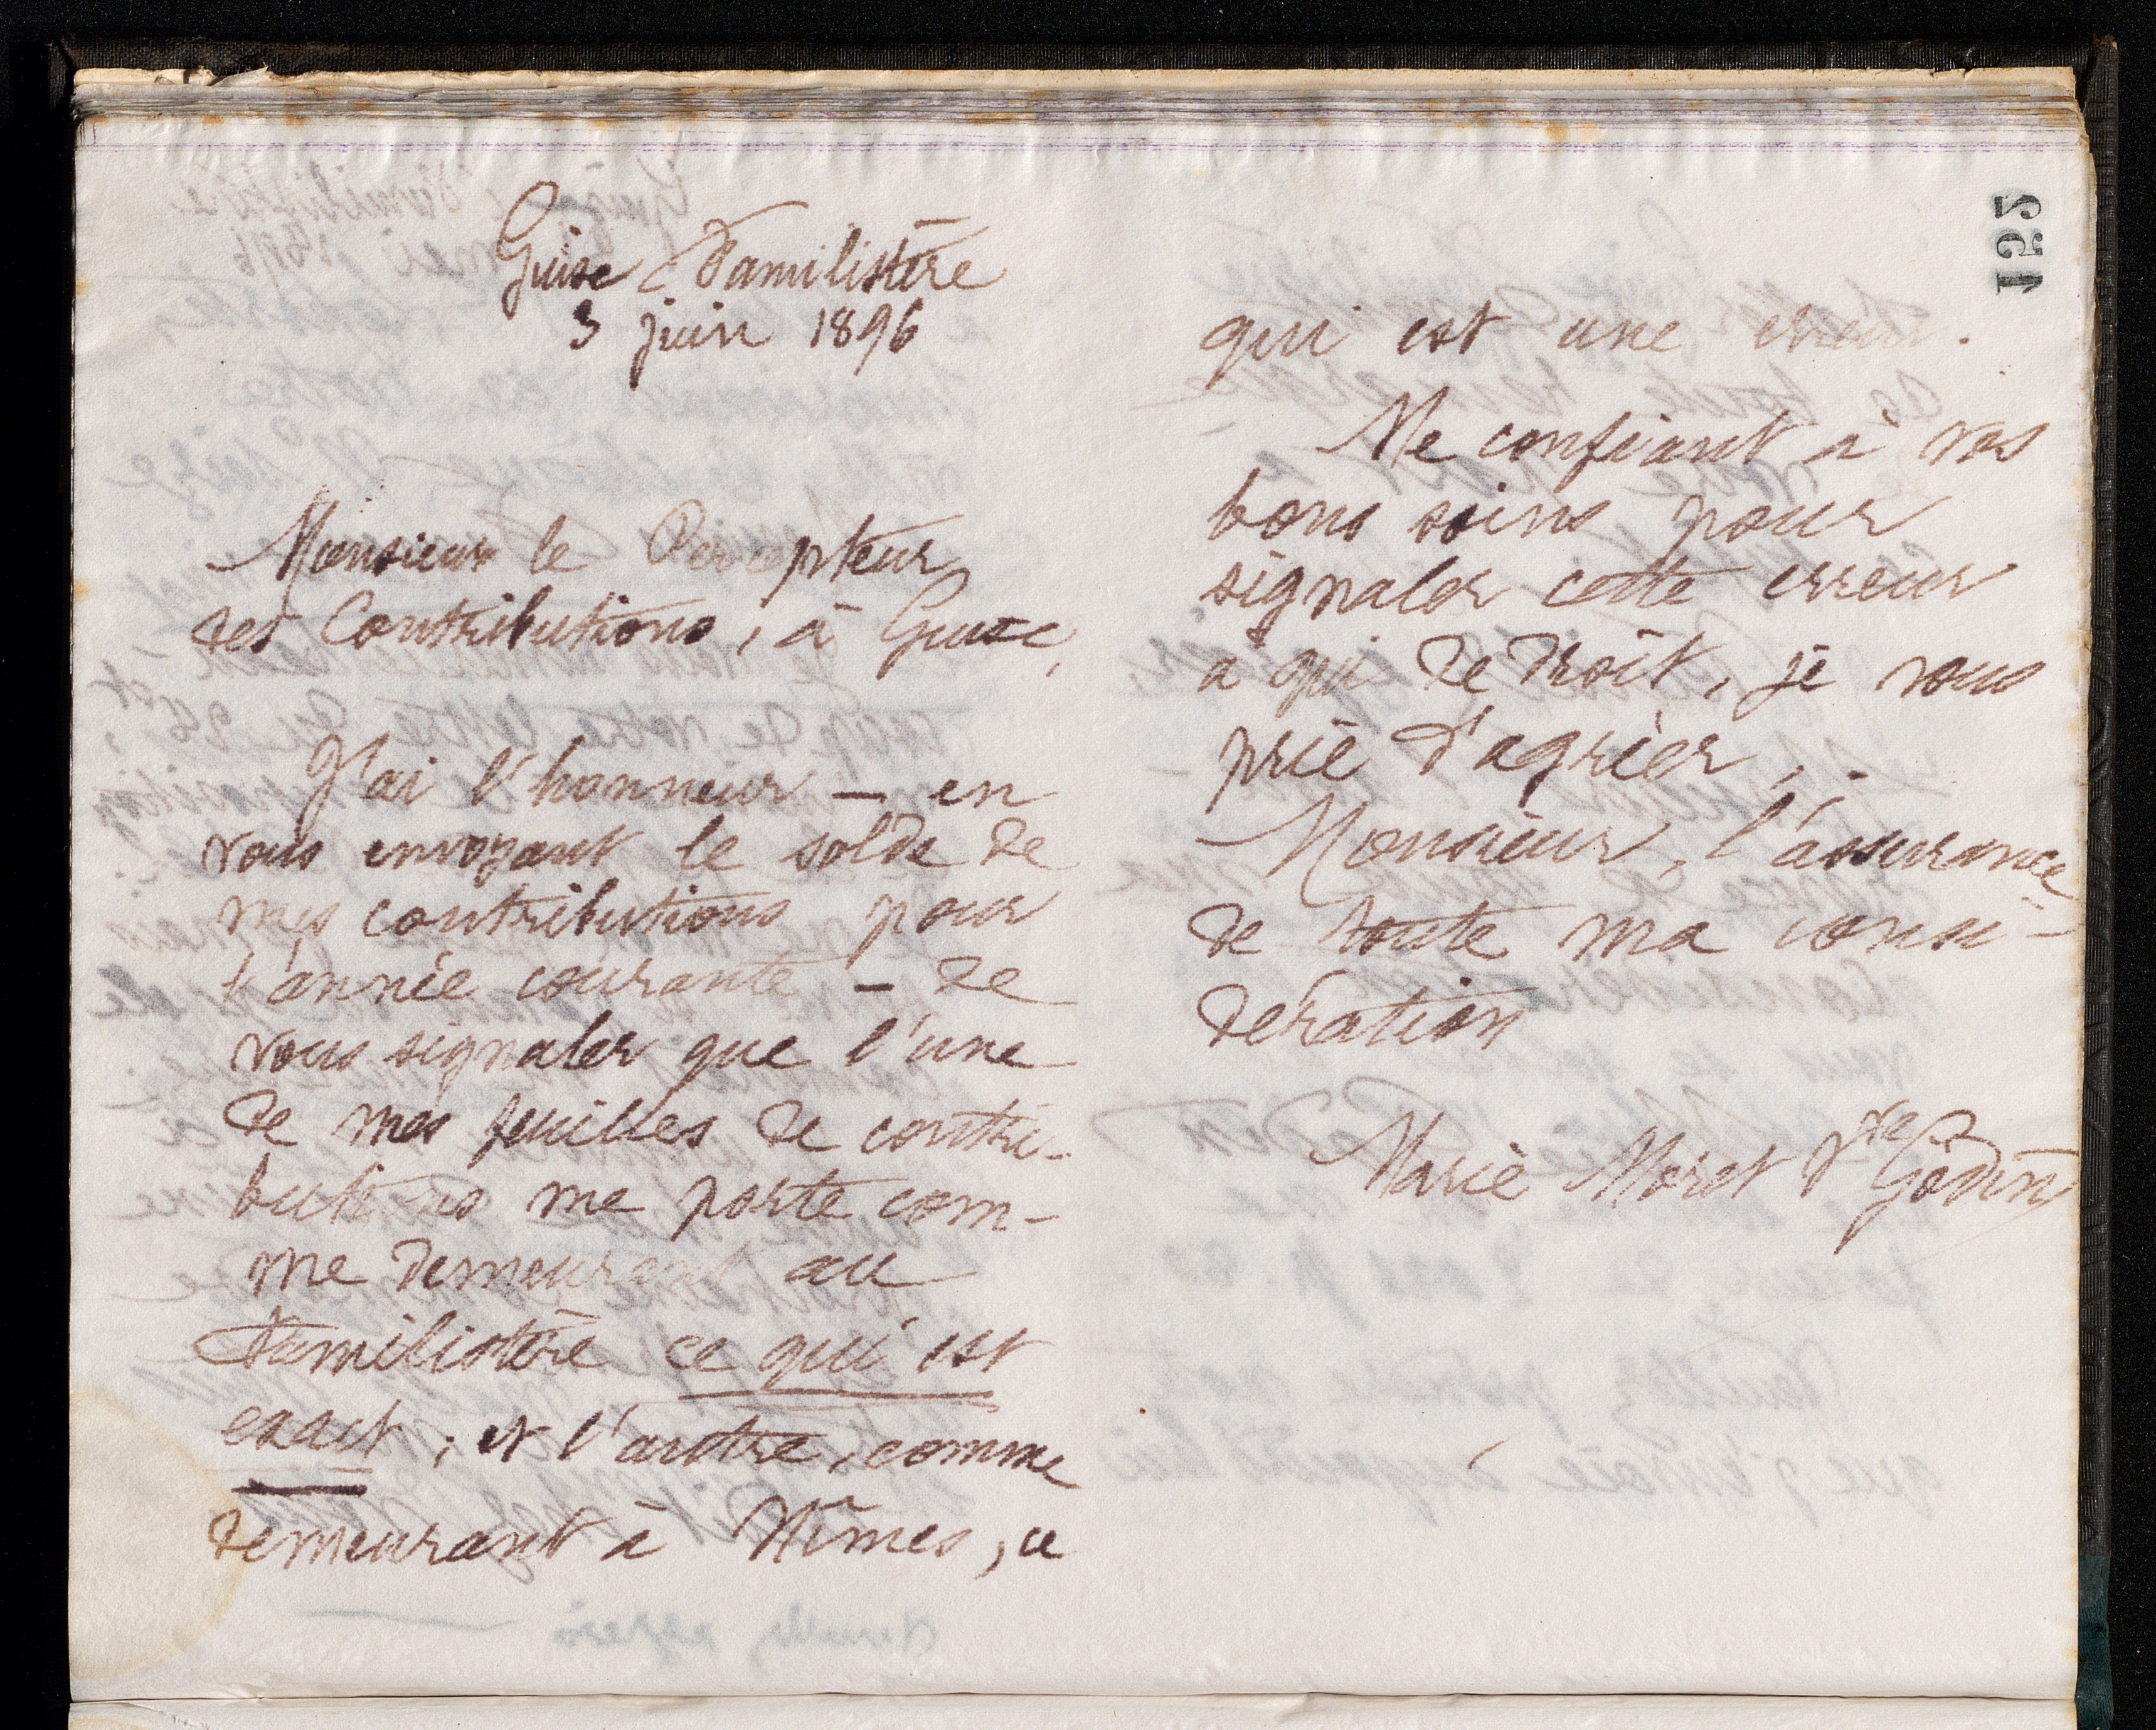 Guise Familistère
3 juin 1896
Monsieur le Percepteur
des Contributions, à Guise,
J'ai l'honneur — en
vous envoyant le solde de
mes contributions pour
l'année courante — de
vous signaler que l'une
de mes feuilles de contri-
butions me porte com-
me demeurant au
Familistère ce qui est
exact ; et l'autre, comme
demeurant à Nîmes, ce
155
qui est une erreur.
Me confiant à vos
bons soins pour
signaler cette erreur
à qui de droit, je vous
prie d'agréer,
Monsieur, l'assurance
de toute ma consi-
dération
Marie Moret Vve Godin